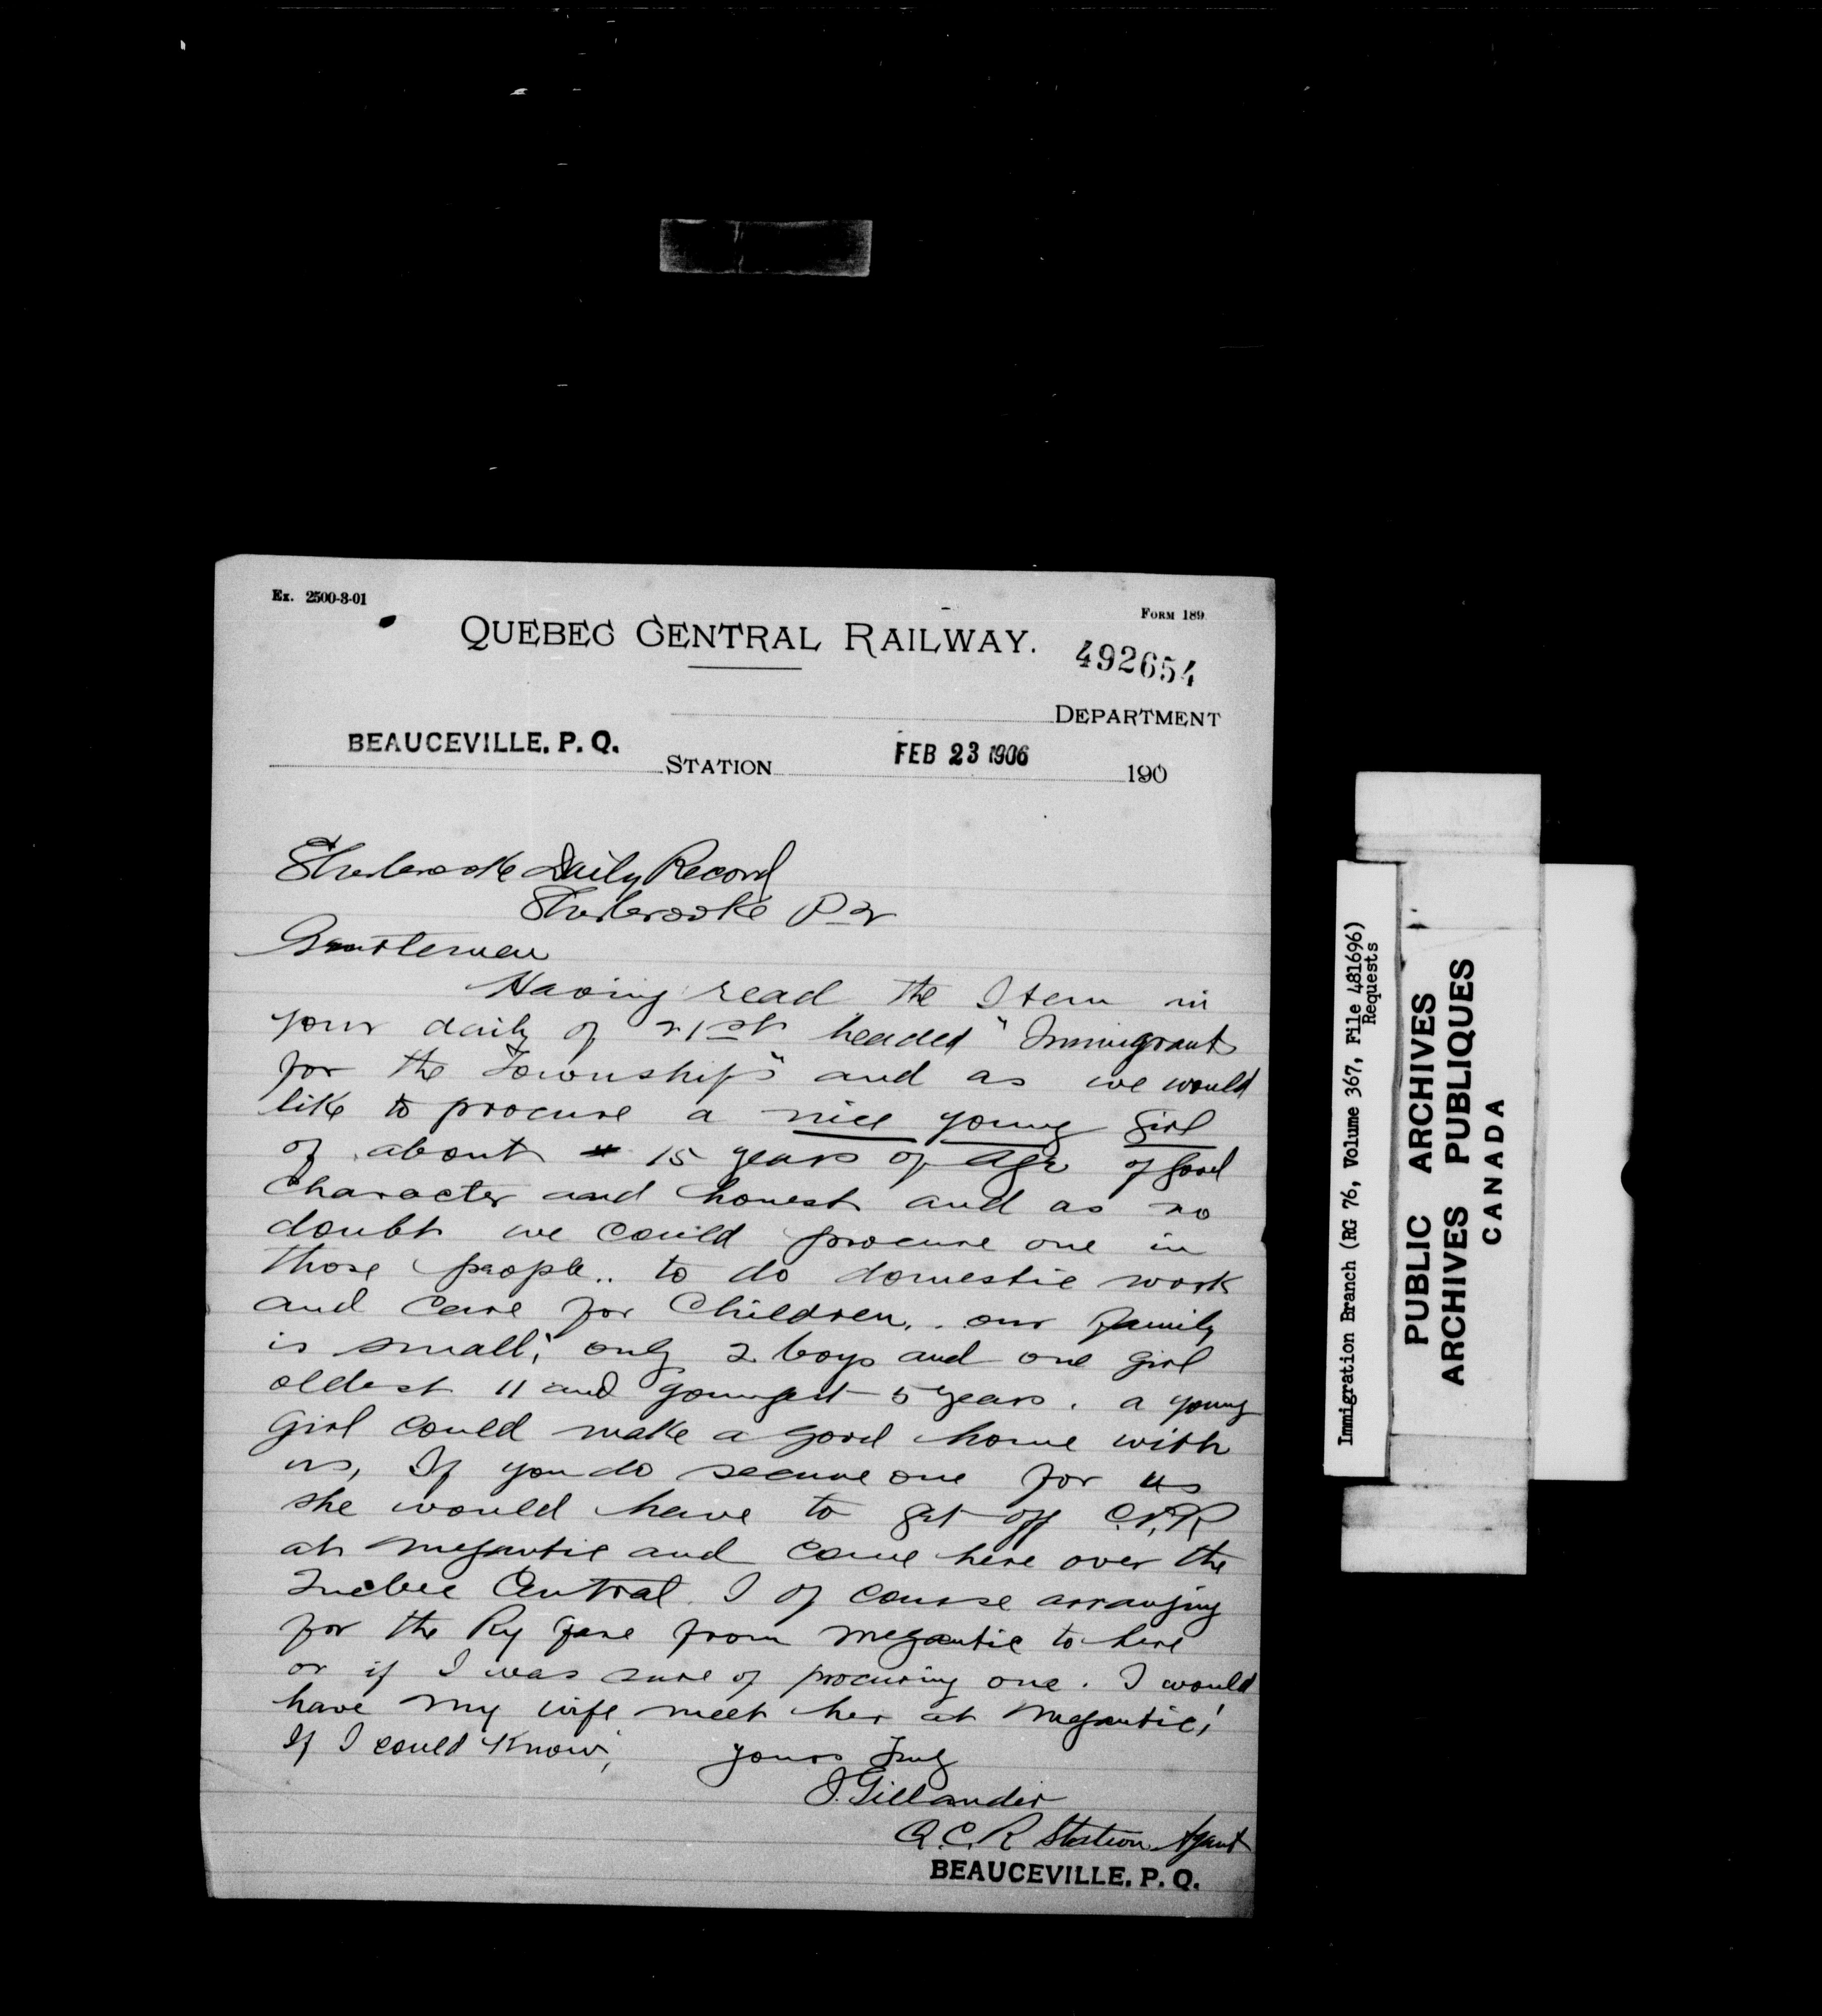 Ex. 2500-3-01
Form 189
QUEBEC CENTRAL RAILWAY.
492654
DEPARTMENT
BEAUCEVILLE. P. Q.
STATION
FEB 23 1906
190
Sherbrooke Daily Record
Sherbrooke P Q
Gentlemen
Having read the Item in
your daily of 21st headed "Immigrants
for the Townships" and as we would
like to procure a nice young girl
of about 15 years of age of good
character and honest and as no
doubt we could procure one in
those people.. to do domestic work
and care for Children.. our family
is small; only 2 boys and one girl
oldest 11 and youngest 5 years. a young
girl could make a good home with
us, If you do secure one for us
she would have to get off C.P.R
at Megantic and come here over the
Quebec Central. I of course arranging
for the Ry fare from Megantic to here
or if I was sure of procuring one. I would
have my wife meet her at Megantic;
If I could know; yours Truly
J. Gillander
Q.C.R Station Agent
BEAUCEVILLE. P. Q.
Immigration Branch (RG 76, Volume 367, File 481696)
Requests
PUBLIC ARCHIVES
ARCHIVES PUBLIQUES
CANADA